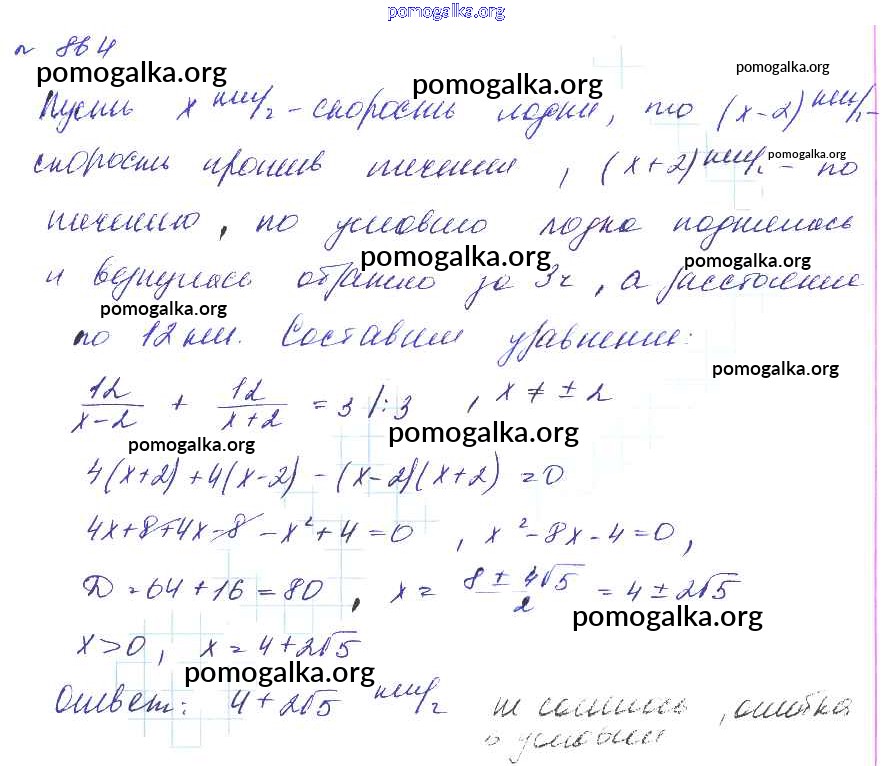 pomogalka.org
№ 864
pomogalka.org pomogalka.org pomogalka.org
Пусть x км/ч - скорость лодки, то (x-2) км/ч -
скорость против течения, (x+2) км/ч - по
pomogalka.org
течению, по условию лодка поднялась
pomogalka.org pomogalka.org
и вернулась обратно за 3ч, а расстояние
pomogalka.org
по 12 км. Составим уравнение:
pomogalka.org
12/(x-2) + 12/(x+2) = 3 |:3 , x ≠ ± 2
pomogalka.org pomogalka.org
4(x+2)+4(x-2) - (x-2)(x+2) = 0
4x+8+4x-8-x²+4=0 , x²-8x-4=0,
D=64+16=80, x = (8 ± 4√5)/2 = 4±2√5
pomogalka.org
x>0, x=4+2√5
pomogalka.org
Ответ: 4+2√5 км/ч
ошибка
в условии